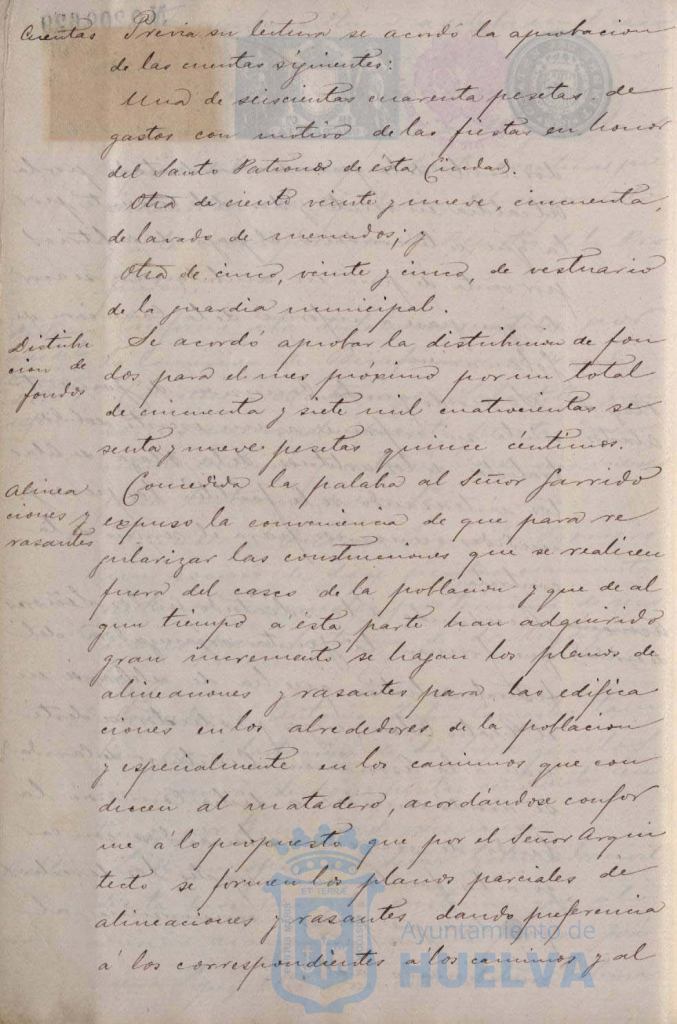 Cuentas
Previa su lectura se acordó la aprobacion
de las cuentas siguientes:
Una de seiscientas cuarenta pesetas de
gastos con motivo de las fiestas en honor
del Santo Patrono de ésta Ciudad.
Otra de ciento veinte y nueve, cincuenta,
de lavado de menudos; y
Otra de cinco, veinte y cinco, de vestuario
de la guardia municipal.
Distribu
cion de
fondos
Se acordó aprobar la distribucion de fon
dos para el mes próximo por un total
de cincuenta y siete mil cuatrocientas se
senta y nueve pesetas quince céntimos.
Alinea
ciones y
rasantes
Concedida la palaba al Señor Garrido
expuso la conveniencia de que para re
gularizar las construcciones que se realicen
fuera del casco de la poblacion y que de al
gun tiempo a ésta parte han adquirido
gran incremento se hagan los planos de
alineaciones y rasantes para las edifica
ciones en los alrededores de la poblacion
y especialmente en los caminos que con
ducen al matadero, acordándose confor
me á lo propuesto que por el Señor Arqui
tecto se formen los planos parciales de
alineaciones y rasantes dando preferencia
á los correspondientes á los caminos y al
Ayuntamiento de
HUELVA